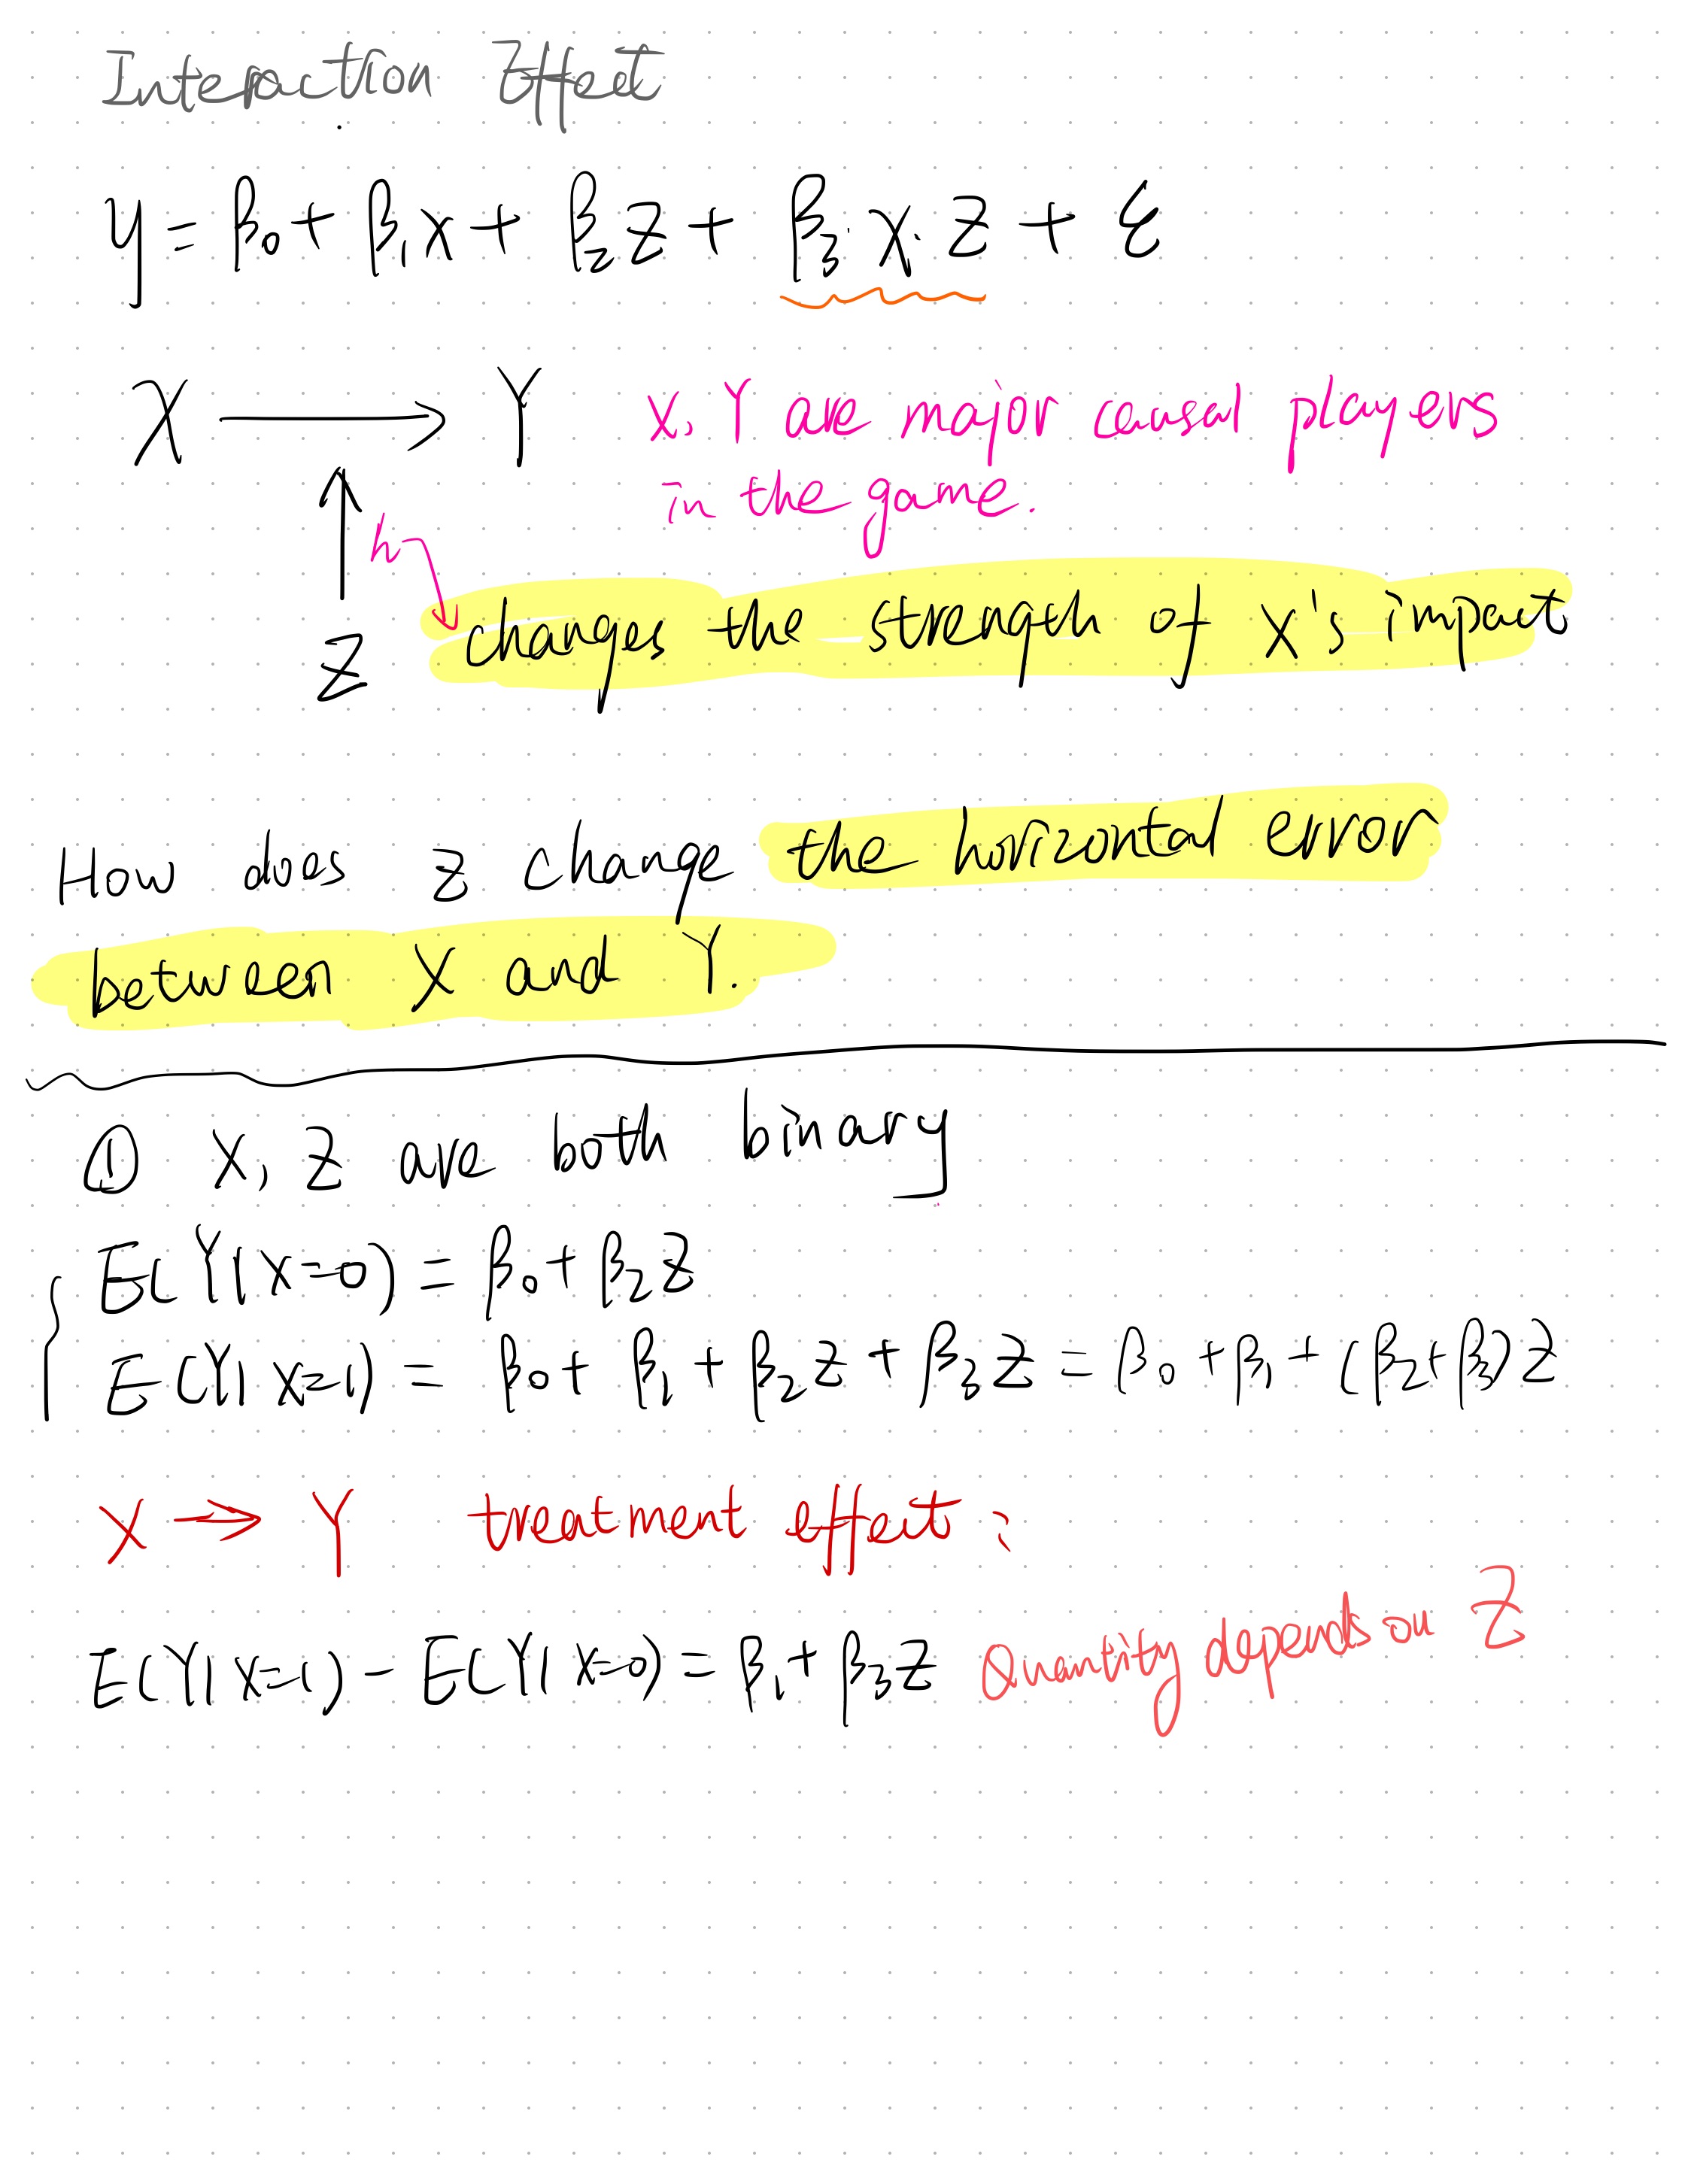 Interaction Effect
y = β₀ + β₁x + β₂z + β₃·x·z + ε
X → Y
x, Y are major causal players
in the game.
h
Z changes the strength of x's impact
How does z change the horizontal error
between X and Y.
① X, Z are both binary
E(Y|X=0) = β₀ + β₂Z
E(Y|X=1) = β₀ + β₁ + β₂Z + β₃Z = β₀ + β₁ + (β₂+β₃)Z
X → Y treatment effect:
E(Y|X=1) - E(Y|X=0) = β₁ + β₃Z Quantity depends on Z